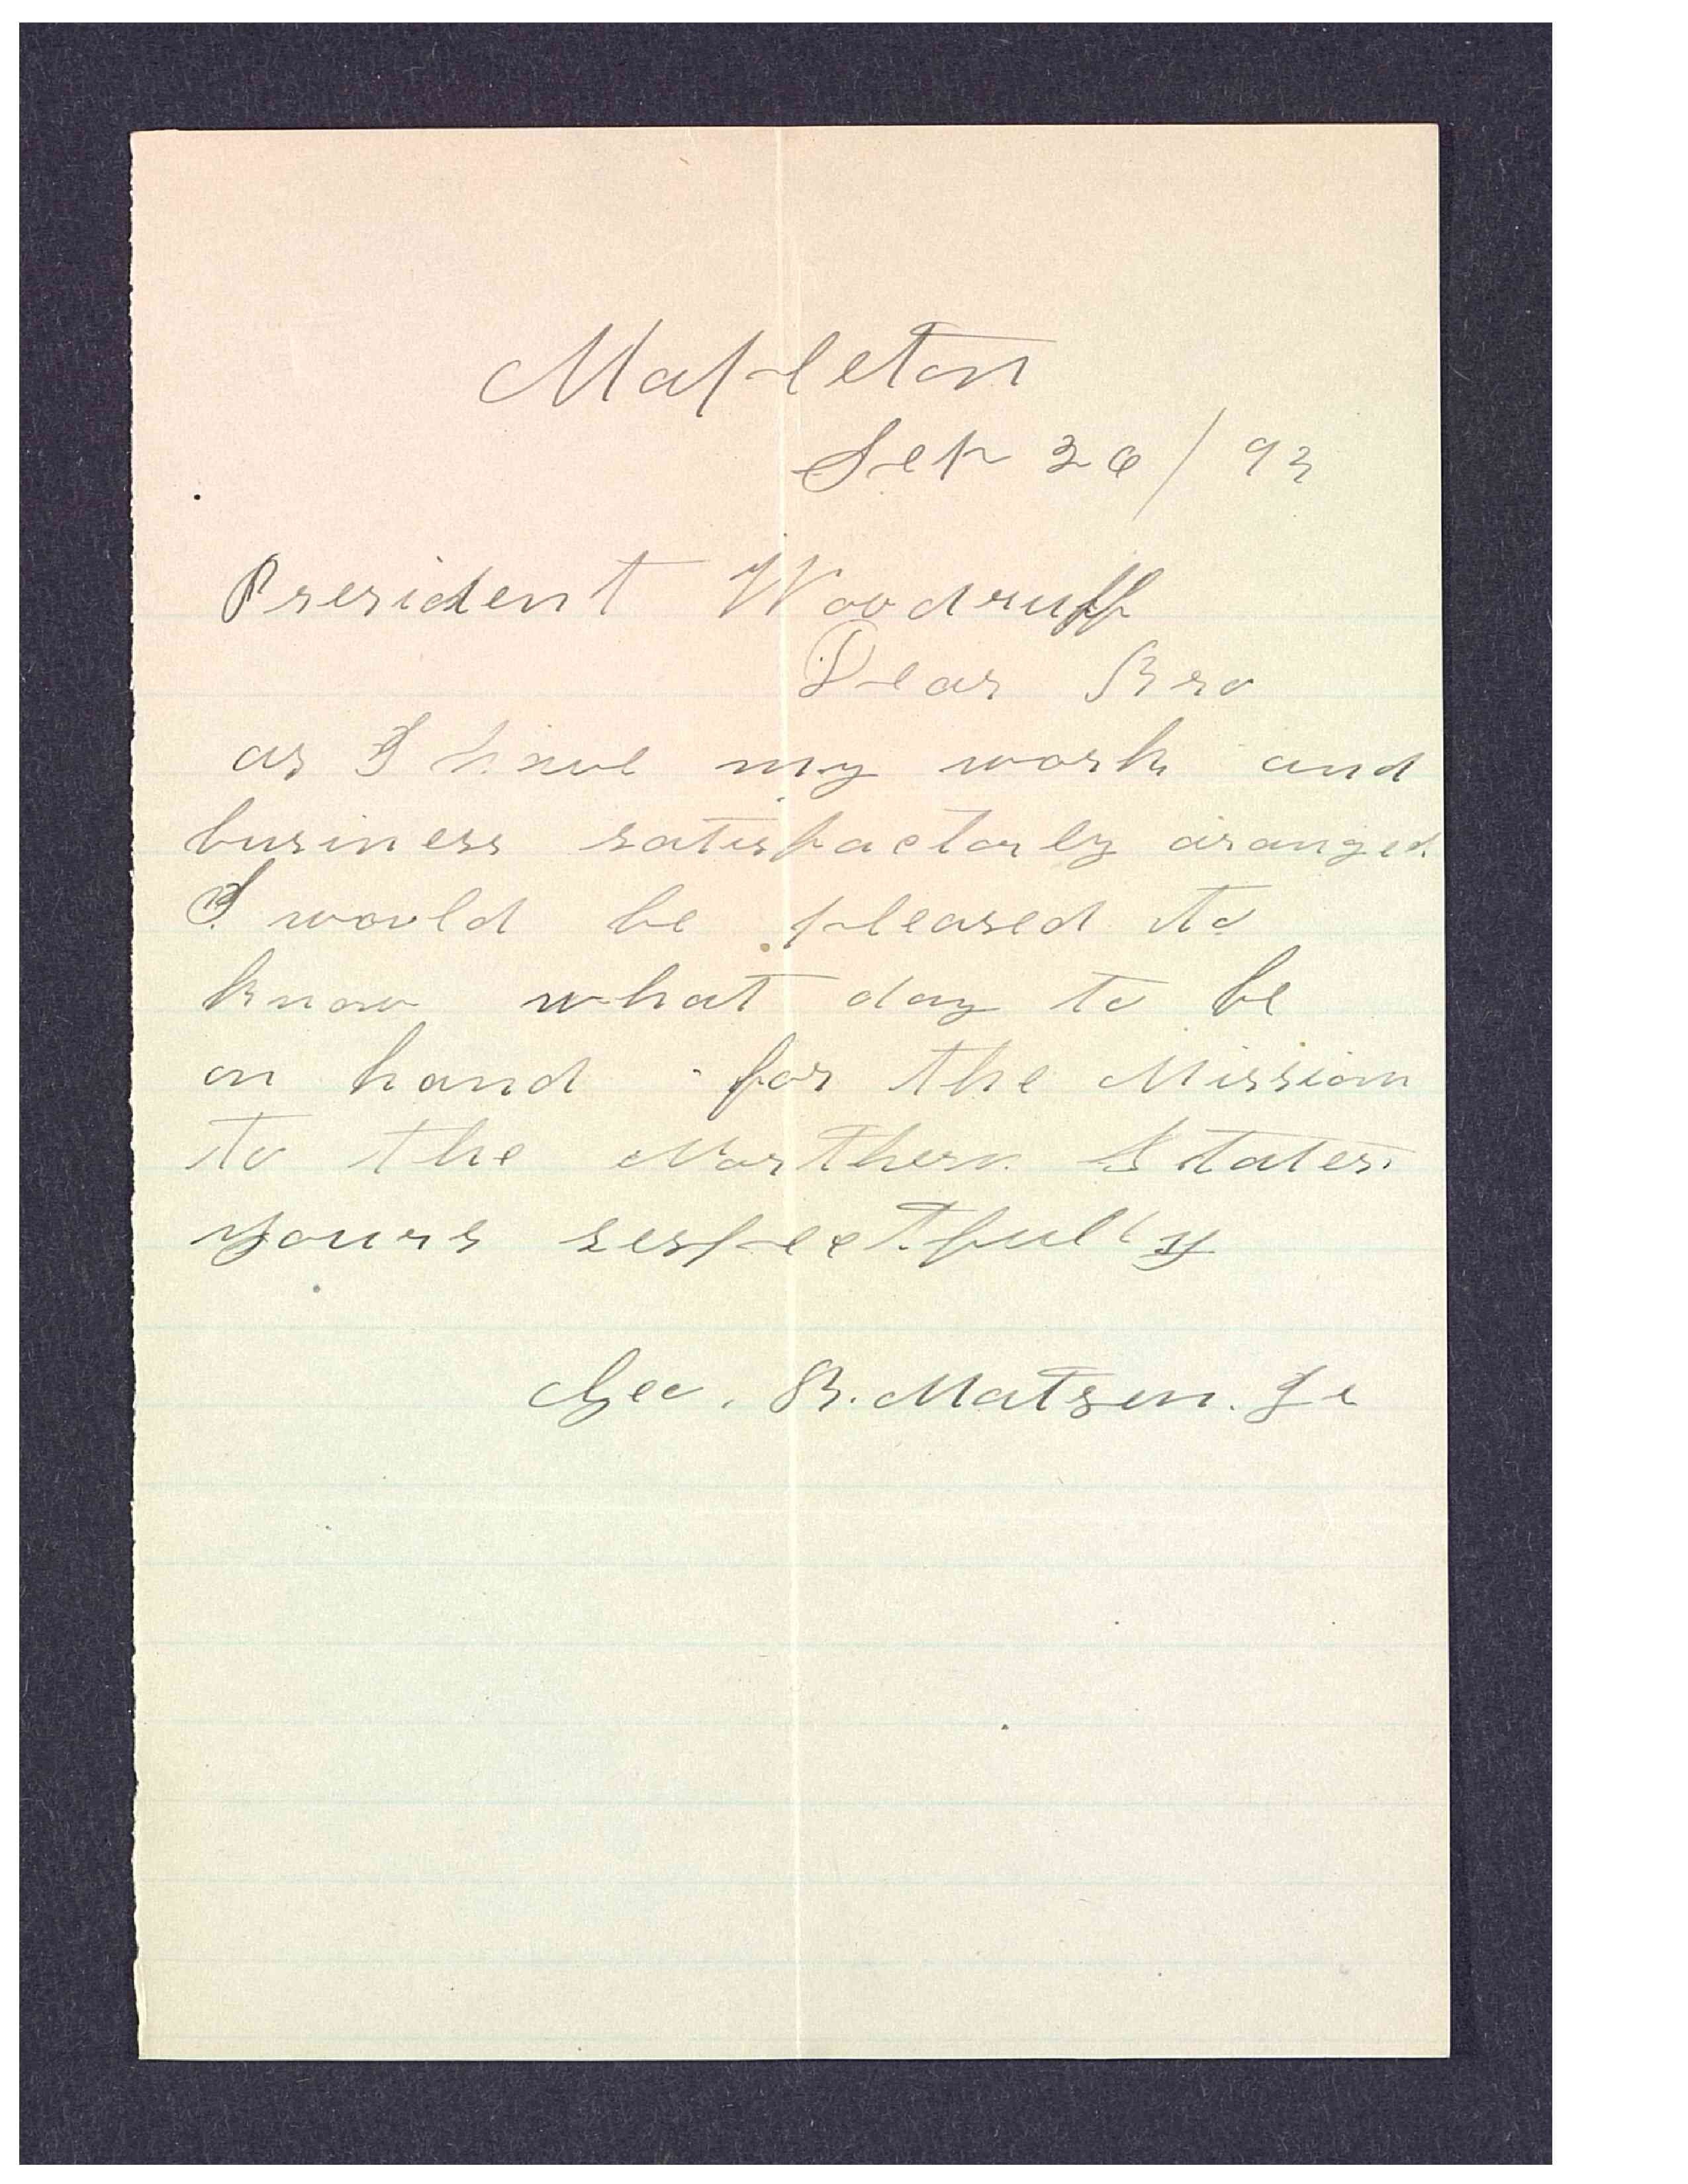 Mapleton
Sep 26/93
President Woodruff
Dear Bro
as I have my work and
business satisfactorly aranged
I would be pleased to
know what day to be
on hand for the Mission
to the Northern States.
yours respectfully
Geo. B. Matsen. Jr